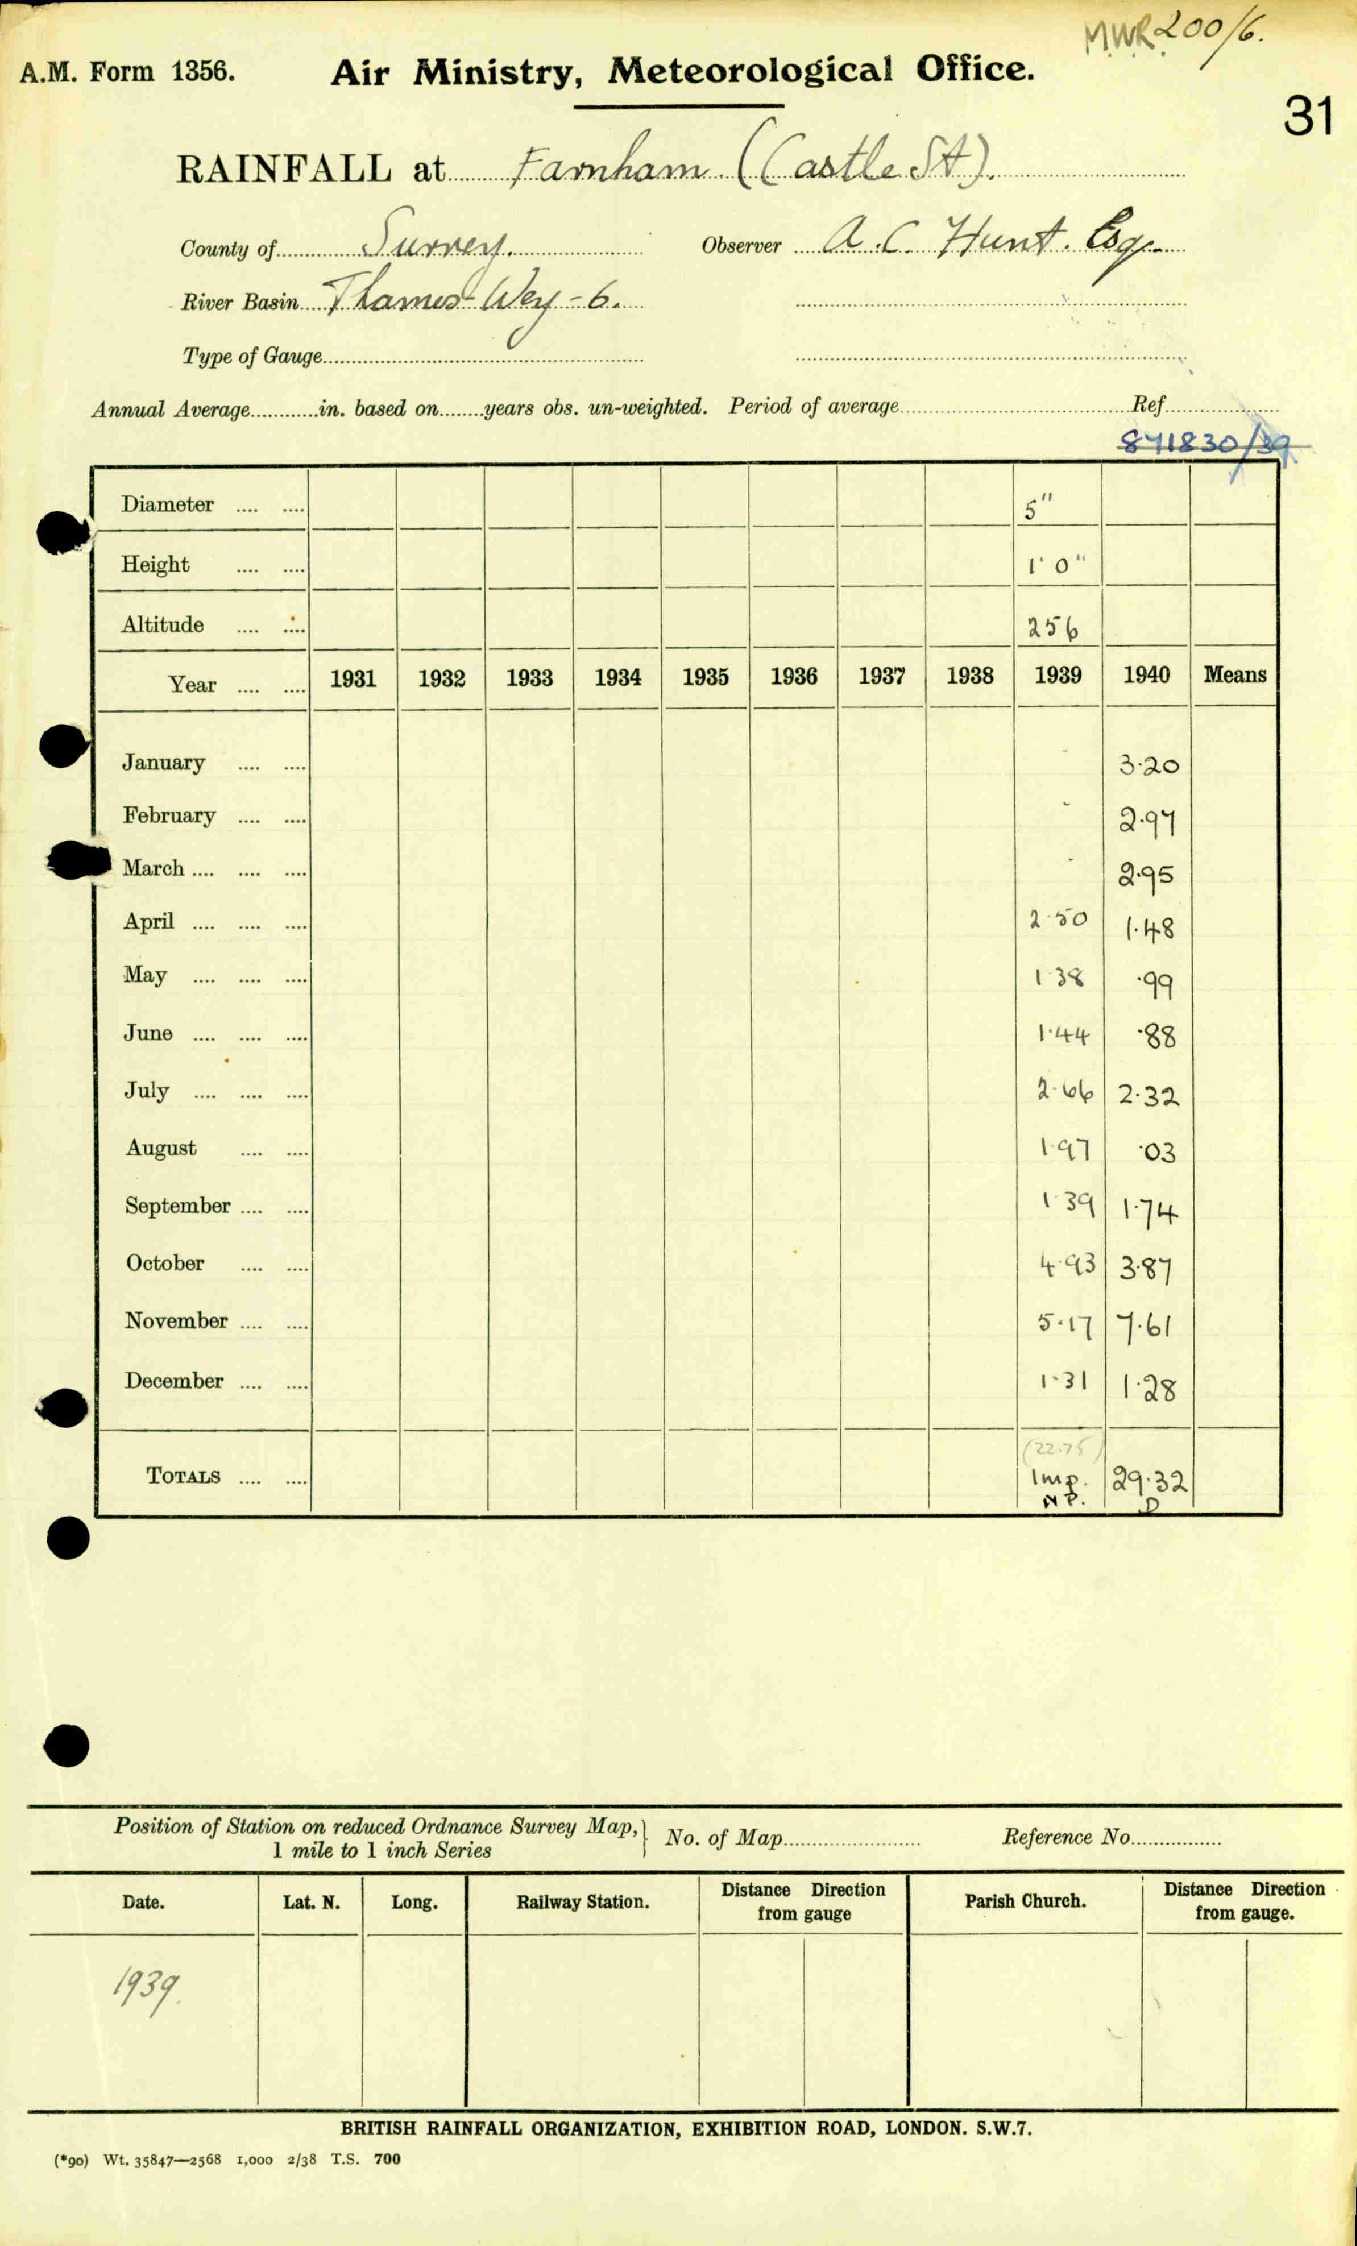 MWR 200/6.
A.M. Form 1356. Air Ministry, Meteorological Office.
31
RAINFALL at Farnham (Castle St).
County of Surrey. Observer A.C. Hunt. Esq.
River Basin Thames-Wey-6.
Type of Gauge
Annual Average in. based on years obs. un-weighted. Period of average Ref
871830/39
Diameter 5"
Height 1' 0"
Altitude 256
Year 1931 1932 1933 1934 1935 1936 1937 1938 1939 1940 Means
January - 3.20
February - 2.97
March - 2.95
April 2.50 1.48
May 1.38 .99
June 1.44 .88
July 2.66 2.32
August 1.97 .03
September 1.39 1.74
October 4.93 3.87
November 5.17 7.61
December 1.31 1.28
(22.75)
TOTALS Imp. 29.32
N P. D
Position of Station on reduced Ordnance Survey Map, 1 mile to 1 inch Series } No. of Map Reference No.
Date. Lat. N. Long. Railway Station. Distance Direction from gauge Parish Church. Distance Direction from gauge.
1939.
BRITISH RAINFALL ORGANIZATION, EXHIBITION ROAD, LONDON. S.W.7.
(*90) Wt. 35847—2568 1,000 2/38 T.S. 700